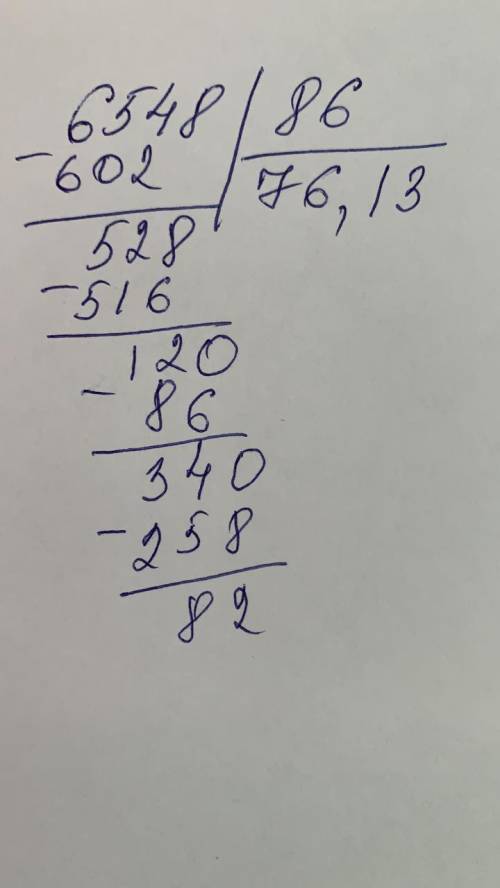 6548 86
-602 76,13
528
-516
120
-86
340
-258
82